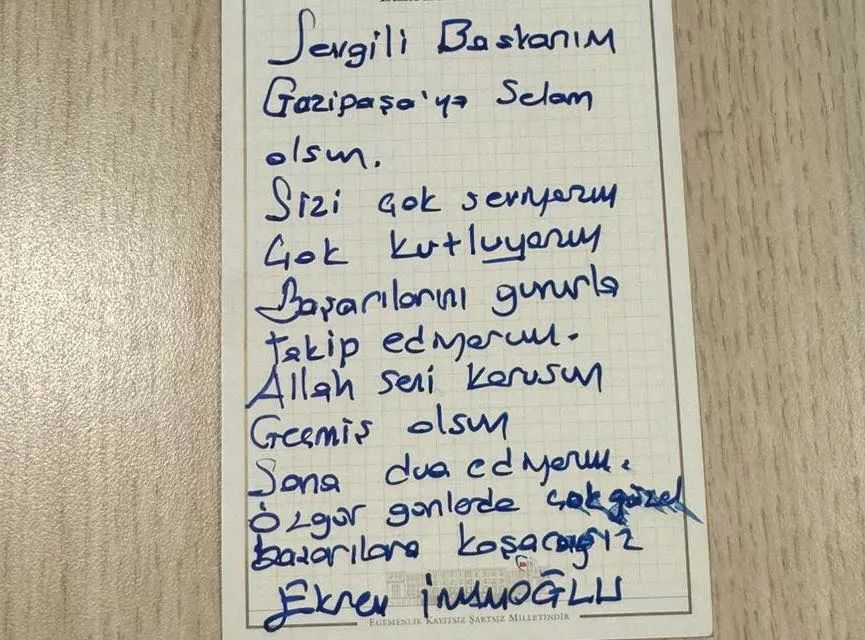 Sevgili Başkanım
Gazipaşa'ya Selam
olsun.
Sizi çok seviyorum
Çok kutluyorum
Başarılarını gururla
takip ediyorum.
Allah seni korusun
Geçmiş olsun
Sana dua ediyorum.
Özgür günlerde çok güzel
başarılara koşacağız
Ekrem İMAMOĞLU
EGEMENLİK KAYITSIZ ŞARTSIZ MİLLETİNDİR